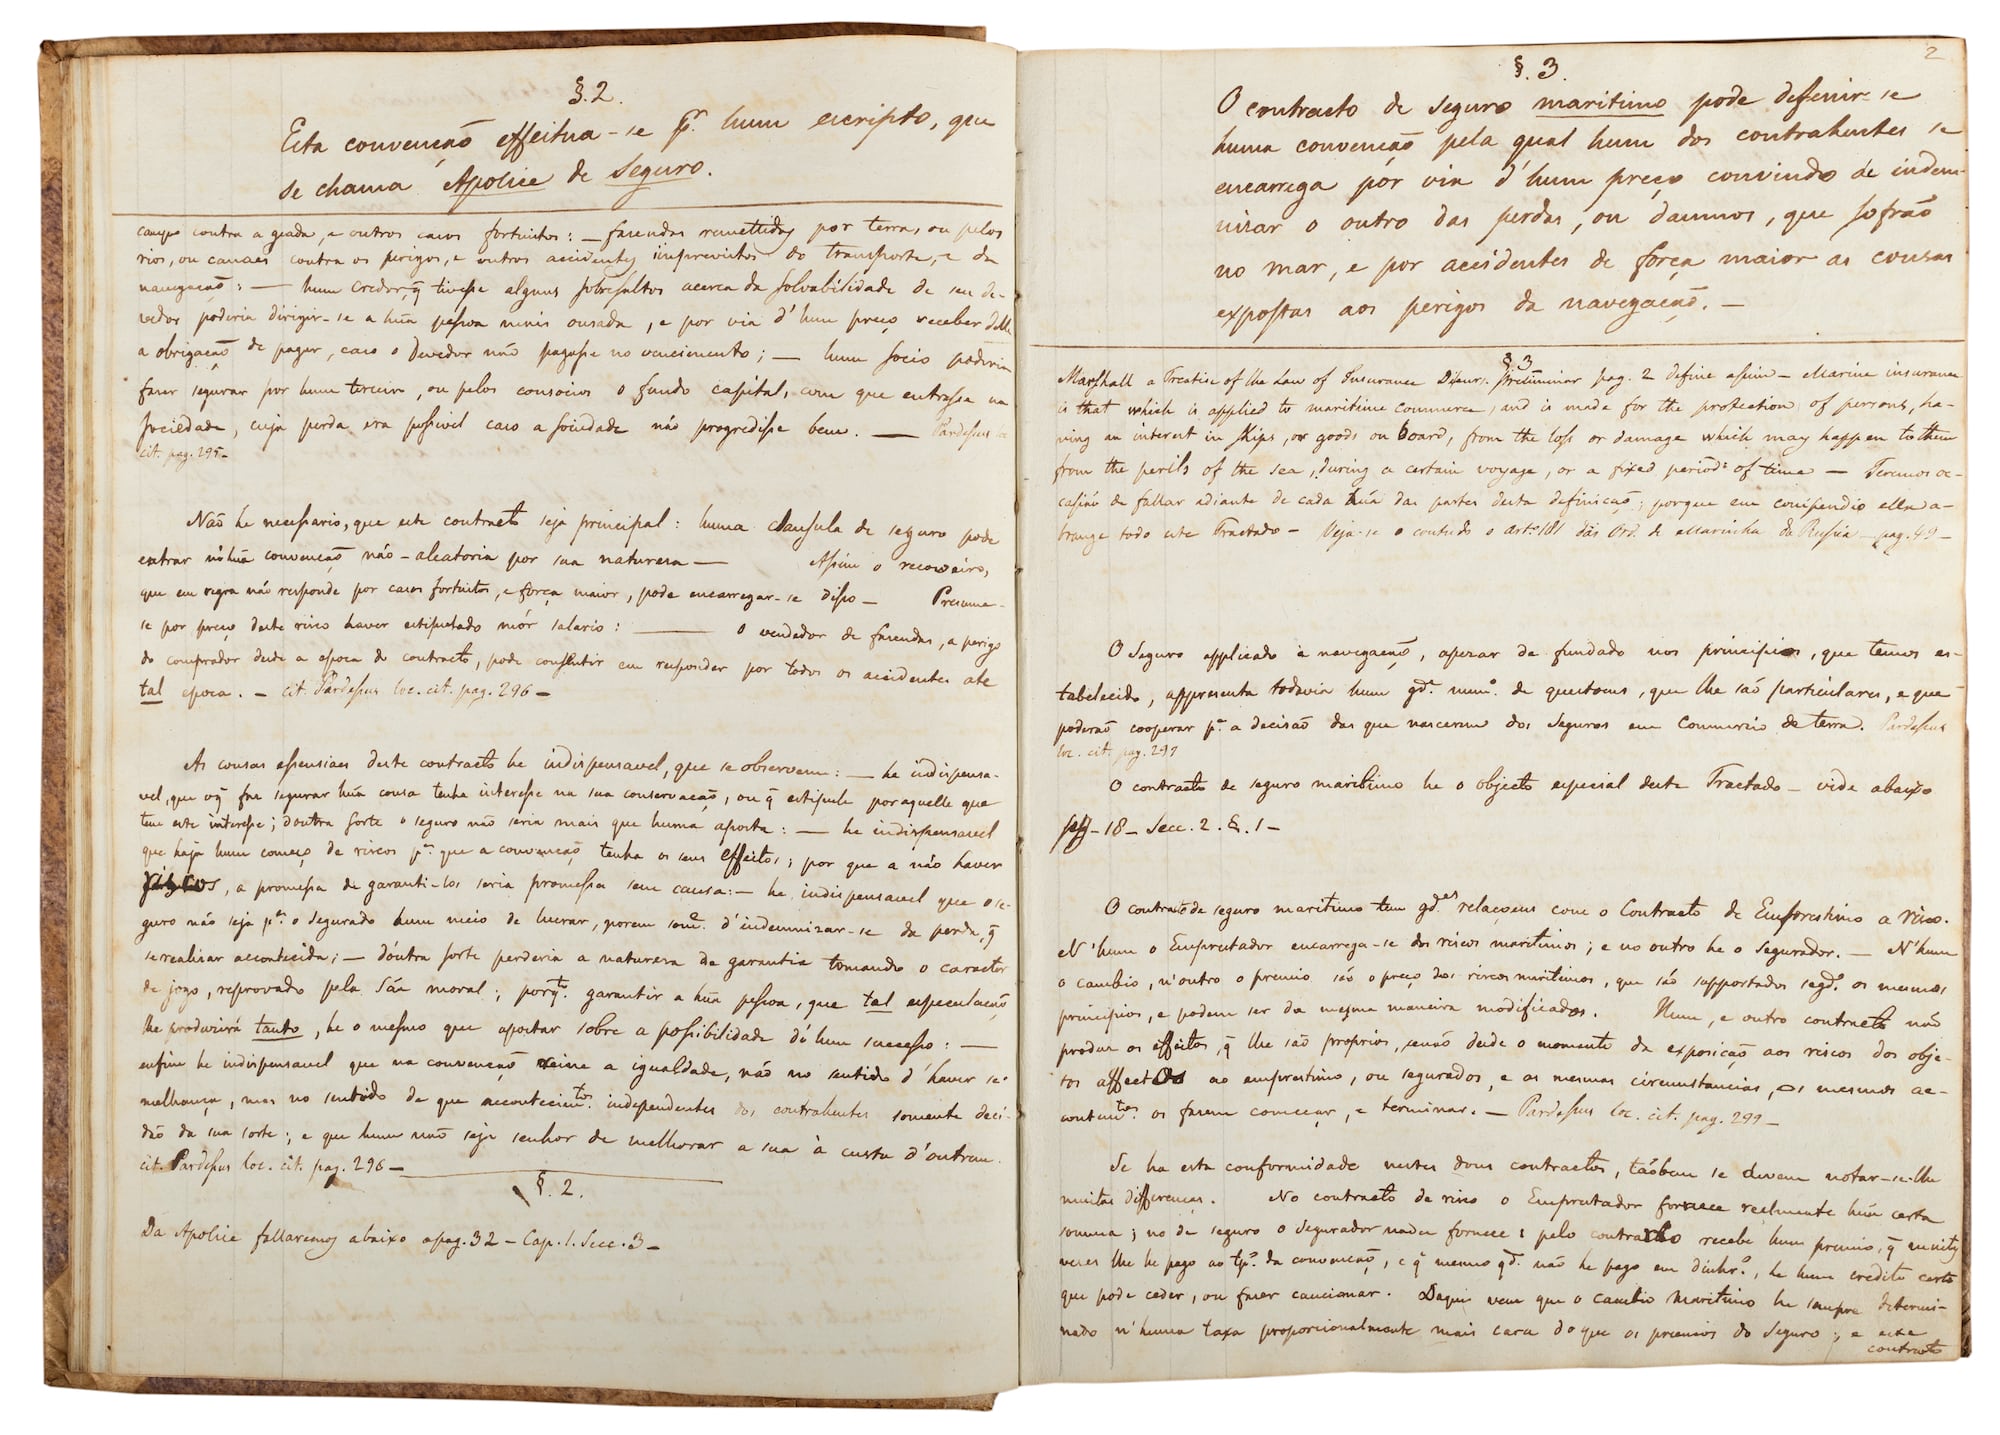 §.2.
Esta convenção effeitua-se pr. hum escripto, que
se chama Apolice de Seguro.
campo contra a geada, e outros casos fortuitos: — fasendas remettidas por terra, ou pelos
rios, ou canaes contra os perigos, e outros accidentes imprevistos do transporte, e da
navegação: — hum credor, q̃ tivesse alguns sobresaltos acerca da solvabilidade de seu de-
vedor poderia dirigir-se a hũa pessoa menos ousada, e por via d'hum preço receber della
a obrigação de pagar, caso o Devedor não pagasse no vencimento; — hum socio poderia
faser segurar por hum terceiro, ou pelos consocios o fundo capital, com que entrasse na
sociedade, cuja perda era possivel caso a sociedade não progredisse bem. — Pardessus loc
cit. pag. 295-
Não he necessario, que este contracto seja principal: huma clausula de seguro pode
entrar n'hũa convenção não-aleatoria por sua naturesa — Assim o recoveiro,
que em regra não responde por casos fortuitos, e força maior, pode encarregar-se disso — Presume-
se por preço deste risco haver estipulado mór salario: — O vendedor de fasendas, a perigo
do comprador desde a epoca do contracto, pode consentir em responder por todos os accidentes até
tal epoca. — cit. Pardessus loc. cit. pag. 296 —
As cousas essensiaes deste contracto he indispensavel, que se observem: — he indispensa-
vel, que o q̃ faz segurar hũa cousa tenha interesse na sua conservação, ou q̃ estipule por aquelle que
tem este interesse; d'outra sorte o seguro não seria mais que huma aposta: — he indispensavel
que haja hum começo de riscos pa. que a convenção tenha os seus effeitos; por que a não haver
riscos, a promessa de garanti-los seria promessa sem causa: — he indispensavel que o se-
guro não seja pa. o Segurado hum meio de lucrar, porem some. d'indemnizar-se da perda, q̃
se realisar acontecida; — d'outra sorte perderia a naturesa de garantia tomando o caracter
de jogo, reprovado pela sãa moral; porqto. garantir a hũa pessoa, que tal especulação
lhe produzirá tanto, he o mesmo que apostar sobre a possibilidade d'hum successo: —
enfim he indispensavel que na convenção reine a igualdade, não no sentido d'haver se-
melhança, mas no sentido de que acontecimtos. independentes dos contrahentes somente deci-
dão da sua sorte; e que hum não seja senhor de melhorar a sua à custa d'outrem.
cit. Pardessus loc. cit. pag. 296 —
§. 2.
Da Apolice fallaremos abaixo a pag. 32 — Cap. 1. Secc. 3 —
2
§. 3.
O contracto de seguro maritimo pode definir-se
huma convenção pela qual hum dos contrahentes se
encarrega por via d'hum preço convindo de indem-
nisar o outro das perdas, ou damnos, que sofrão
no mar, e por accidentes de força maior as cousas
expostas aos perigos da navegação. —
§ 3
Marshall a Treatise of the Law of Insurance Discurs. Preliminar pag. 2 define assim — Marine insurance
is that which is applied to maritime commerce, and is made for the protection of persons, ha-
ving an interest in Ships, or goods on board, from the loss or damage which may happen to them
from the perils of the sea, during a certain voyage, or a fixed period of time — Teremos oc-
casião de fallar adiante de cada hũa das partes desta definição; porque em compendio ella a-
brange todo este Tractado — Veja-se o contudo o arto. 181 das Ord. de Marinha da Russia — pag. 49 —
O Seguro applicado à navegação, apezar de fundado nos principios, que temos es-
tabelecido, appresenta todavia hum gde. numo. de questoens, que lhe são particulares, e que
poderão cooperar pa. a decisão das que nascerem dos Seguros em Commercio de terra. Pardessus
loc. cit. pag. 297
O contracto de seguro maritimo he o objecto especial deste Tractado — vide abaixo
pag — 18 — Secc. 2. §. 1 —
O contracto de seguro maritimo tem gdes. relaçoens com o Contracto de Emprestimo a risco.
N'hum o Emprestador encarrega-se dos riscos maritimos; e no outro he o Segurador. — N'hum
o cambio, n'outro o premio são o preço dos riscos maritimos, que são supportados segdo. os mesmos
principios, e podem ser da mesma maneira modificados. Hum, e outro contracto não
produz os effeitos, q̃ lhe são proprios, senão desde o momento da exposição aos riscos dos obje-
tos affectos ao emprestimo, ou segurados, e as mesmas circumstancias, os mesmos ac-
contemtos. os fazem começar, e terminar. — Pardessus loc. cit. pag. 299 —
Se ha esta conformidade nestes dous contractos, tãobem se devem notar-se-lhe
muitas differenças. No contracto de risco o Emprestador fornece realmente hũa certa
somma; no de seguro o Segurador nada fornece: pelo contrario recebe hum premio, q̃ muitas
vezes lhe he pago ao tpo. da convenção, e q̃ mesmo qdo. não he pago em dinhro., he hum credito certo
que pode ceder, ou fazer caucionar. Daqui vem que o cambio maritimo he sempre determi-
nado n'huma taxa proporcionalmente mais cara do que os premios do Seguro; e este
contracto